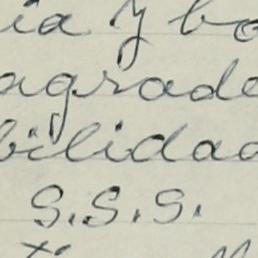 ia y bo
agrade
bilidad
S.S.S.